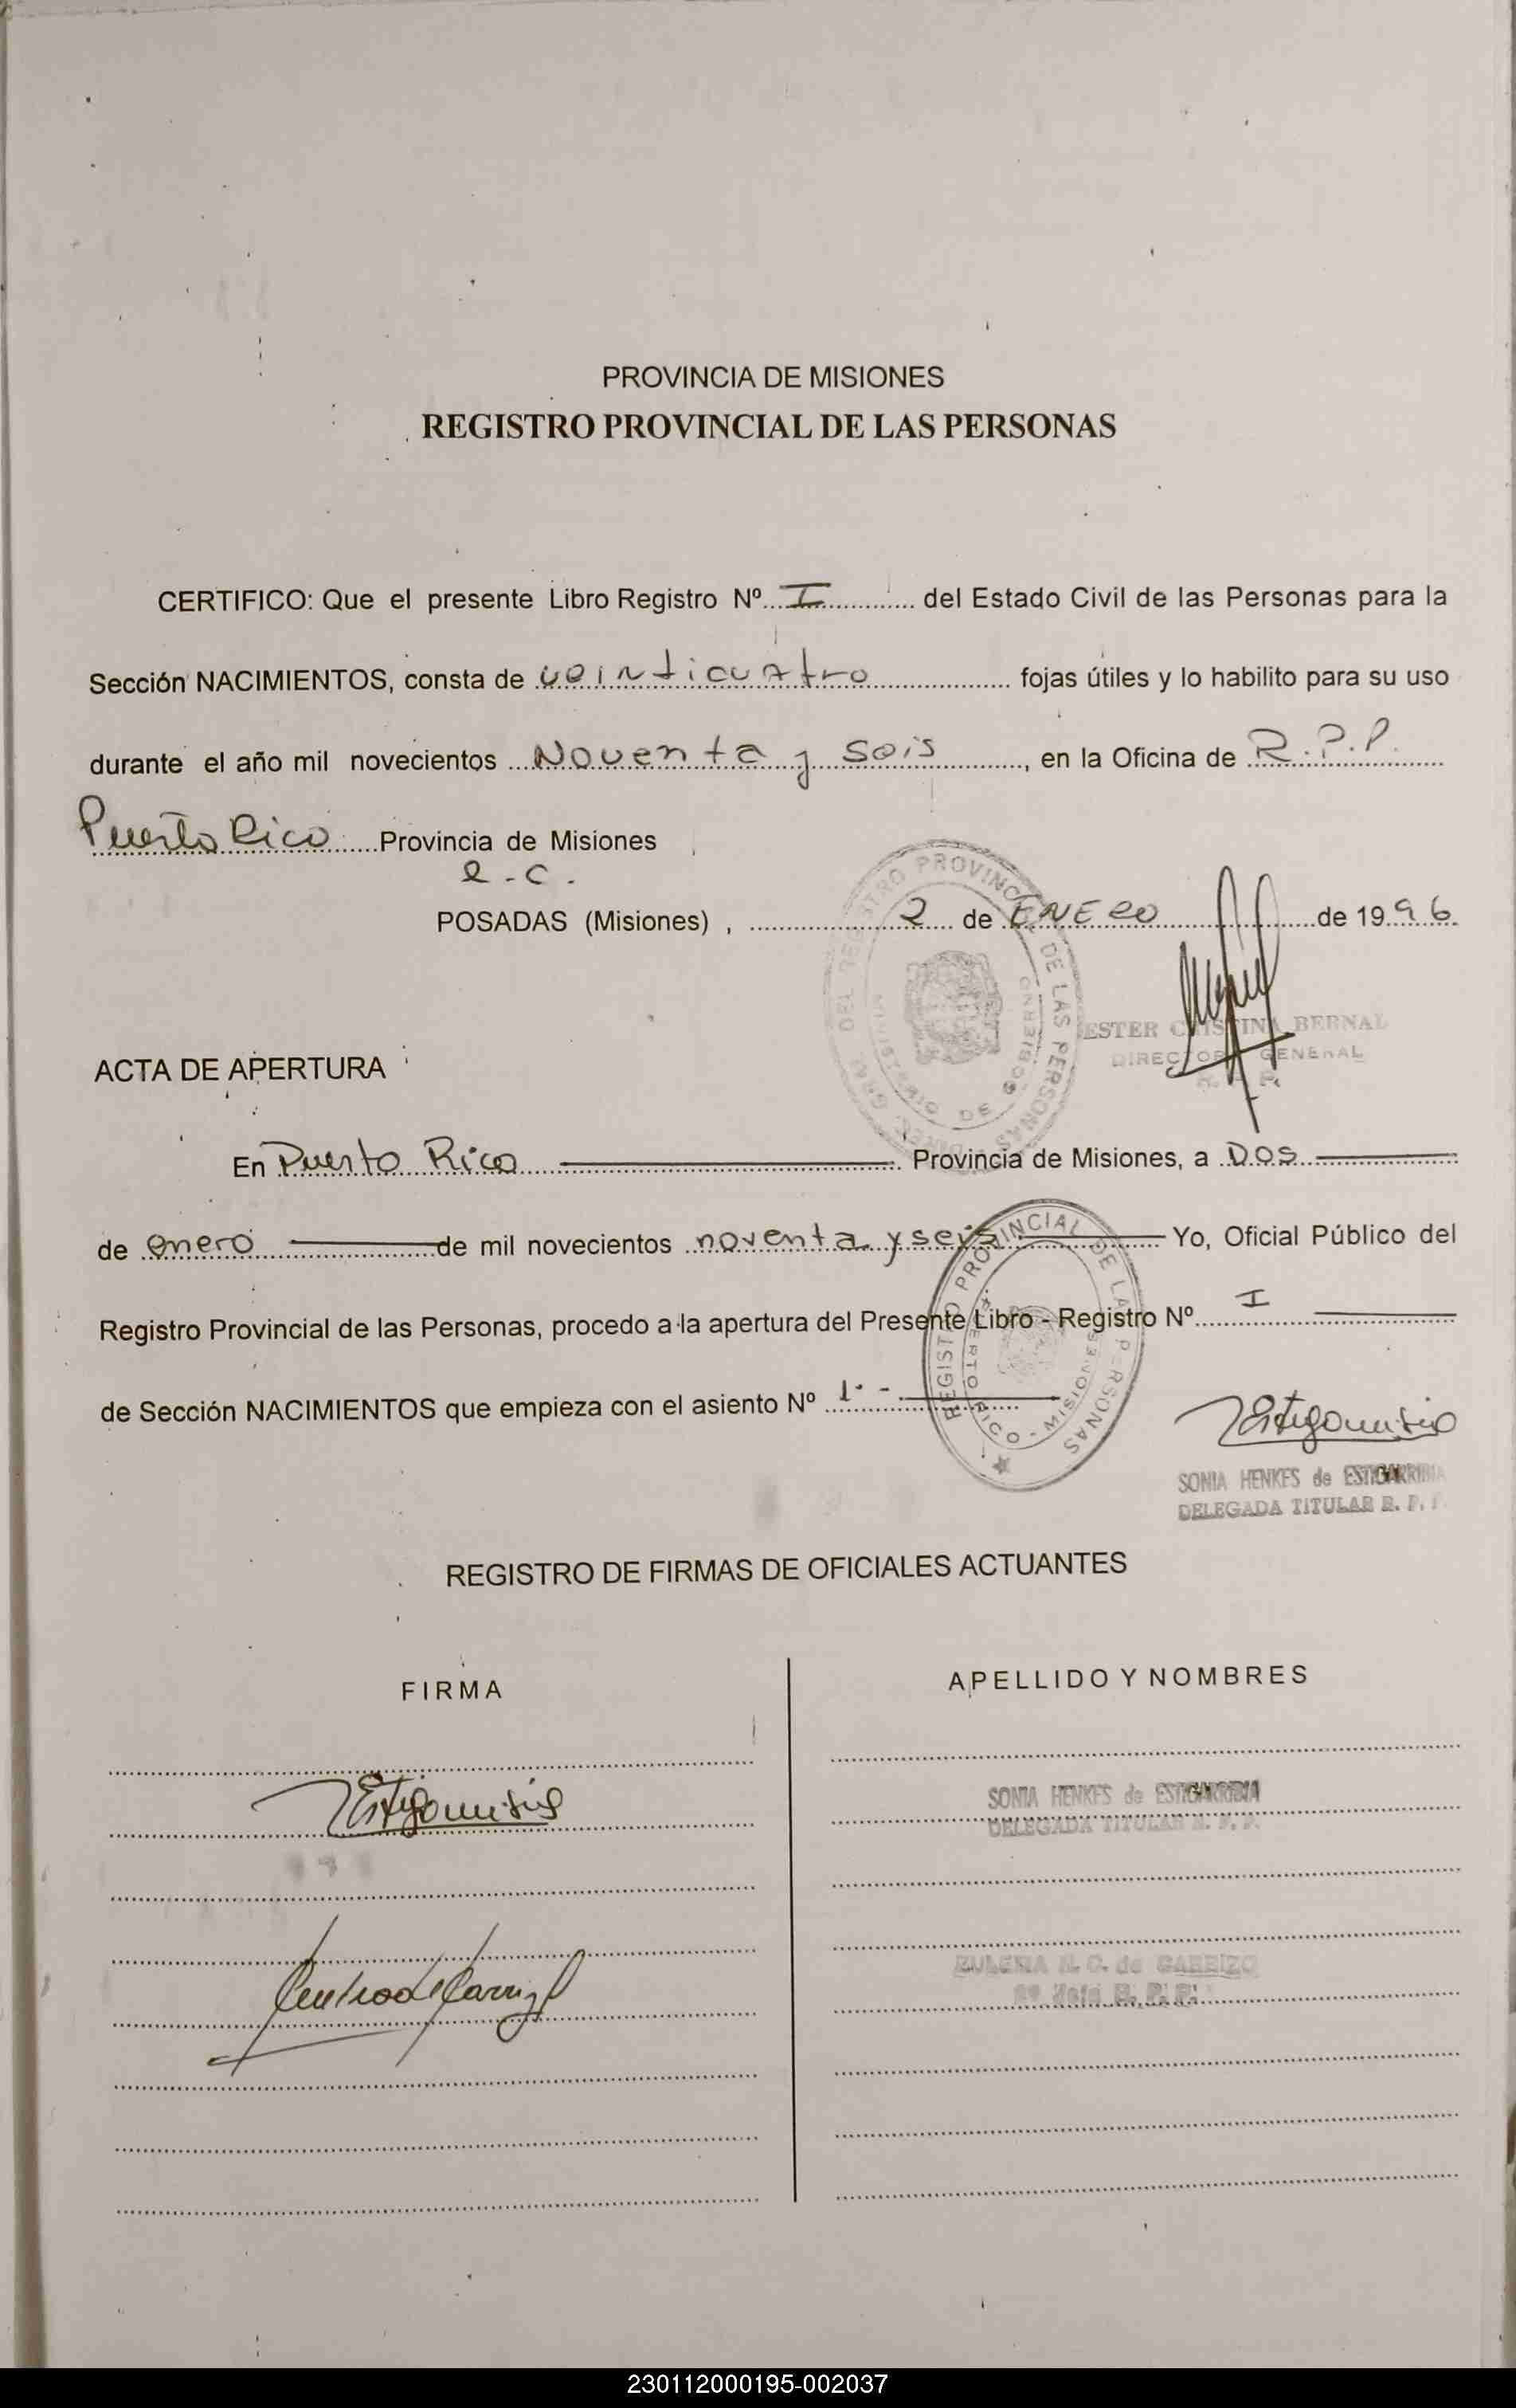 PROVINCIA DE MISIONES
REGISTRO PROVINCIAL DE LAS PERSONAS
CERTIFICO: Que el presente Libro Registro Nº I del Estado Civil de las Personas para la
Sección NACIMIENTOS, consta de veinticuatro fojas útiles y lo habilito para su uso
durante el año mil novecientos Noventa y seis, en la Oficina de R.P.P.
Puerto Rico Provincia de Misiones
e.c.
POSADAS (Misiones), 2 de ENERO de 1996.
REGISTRO PROVINCIAL DE LAS PERSONAS
ESTER CRISTINA BERNAL
DIRECTOR GENERAL
ACTA DE APERTURA
En Puerto Rico Provincia de Misiones, a Dos
de enero de mil novecientos noventa y seis Yo, Oficial Público del
Registro Provincial de las Personas, procedo a la apertura del Presente Libro - Registro Nº I
de Sección NACIMIENTOS que empieza con el asiento Nº 1.-
REGISTRO PROVINCIAL DE LAS PERSONAS
PUERTO RICO - MISIONES
SONIA HENKES de ESTIGARRIBIA
DELEGADA TITULAR R. P. P.
REGISTRO DE FIRMAS DE OFICIALES ACTUANTES
FIRMA
APELLIDO Y NOMBRES
SONIA HENKES de ESTIGARRIBIA
DELEGADA TITULAR R. P. P.
ZULEMA N. C. de CARRIZO
R. P. P.
230112000195-002037